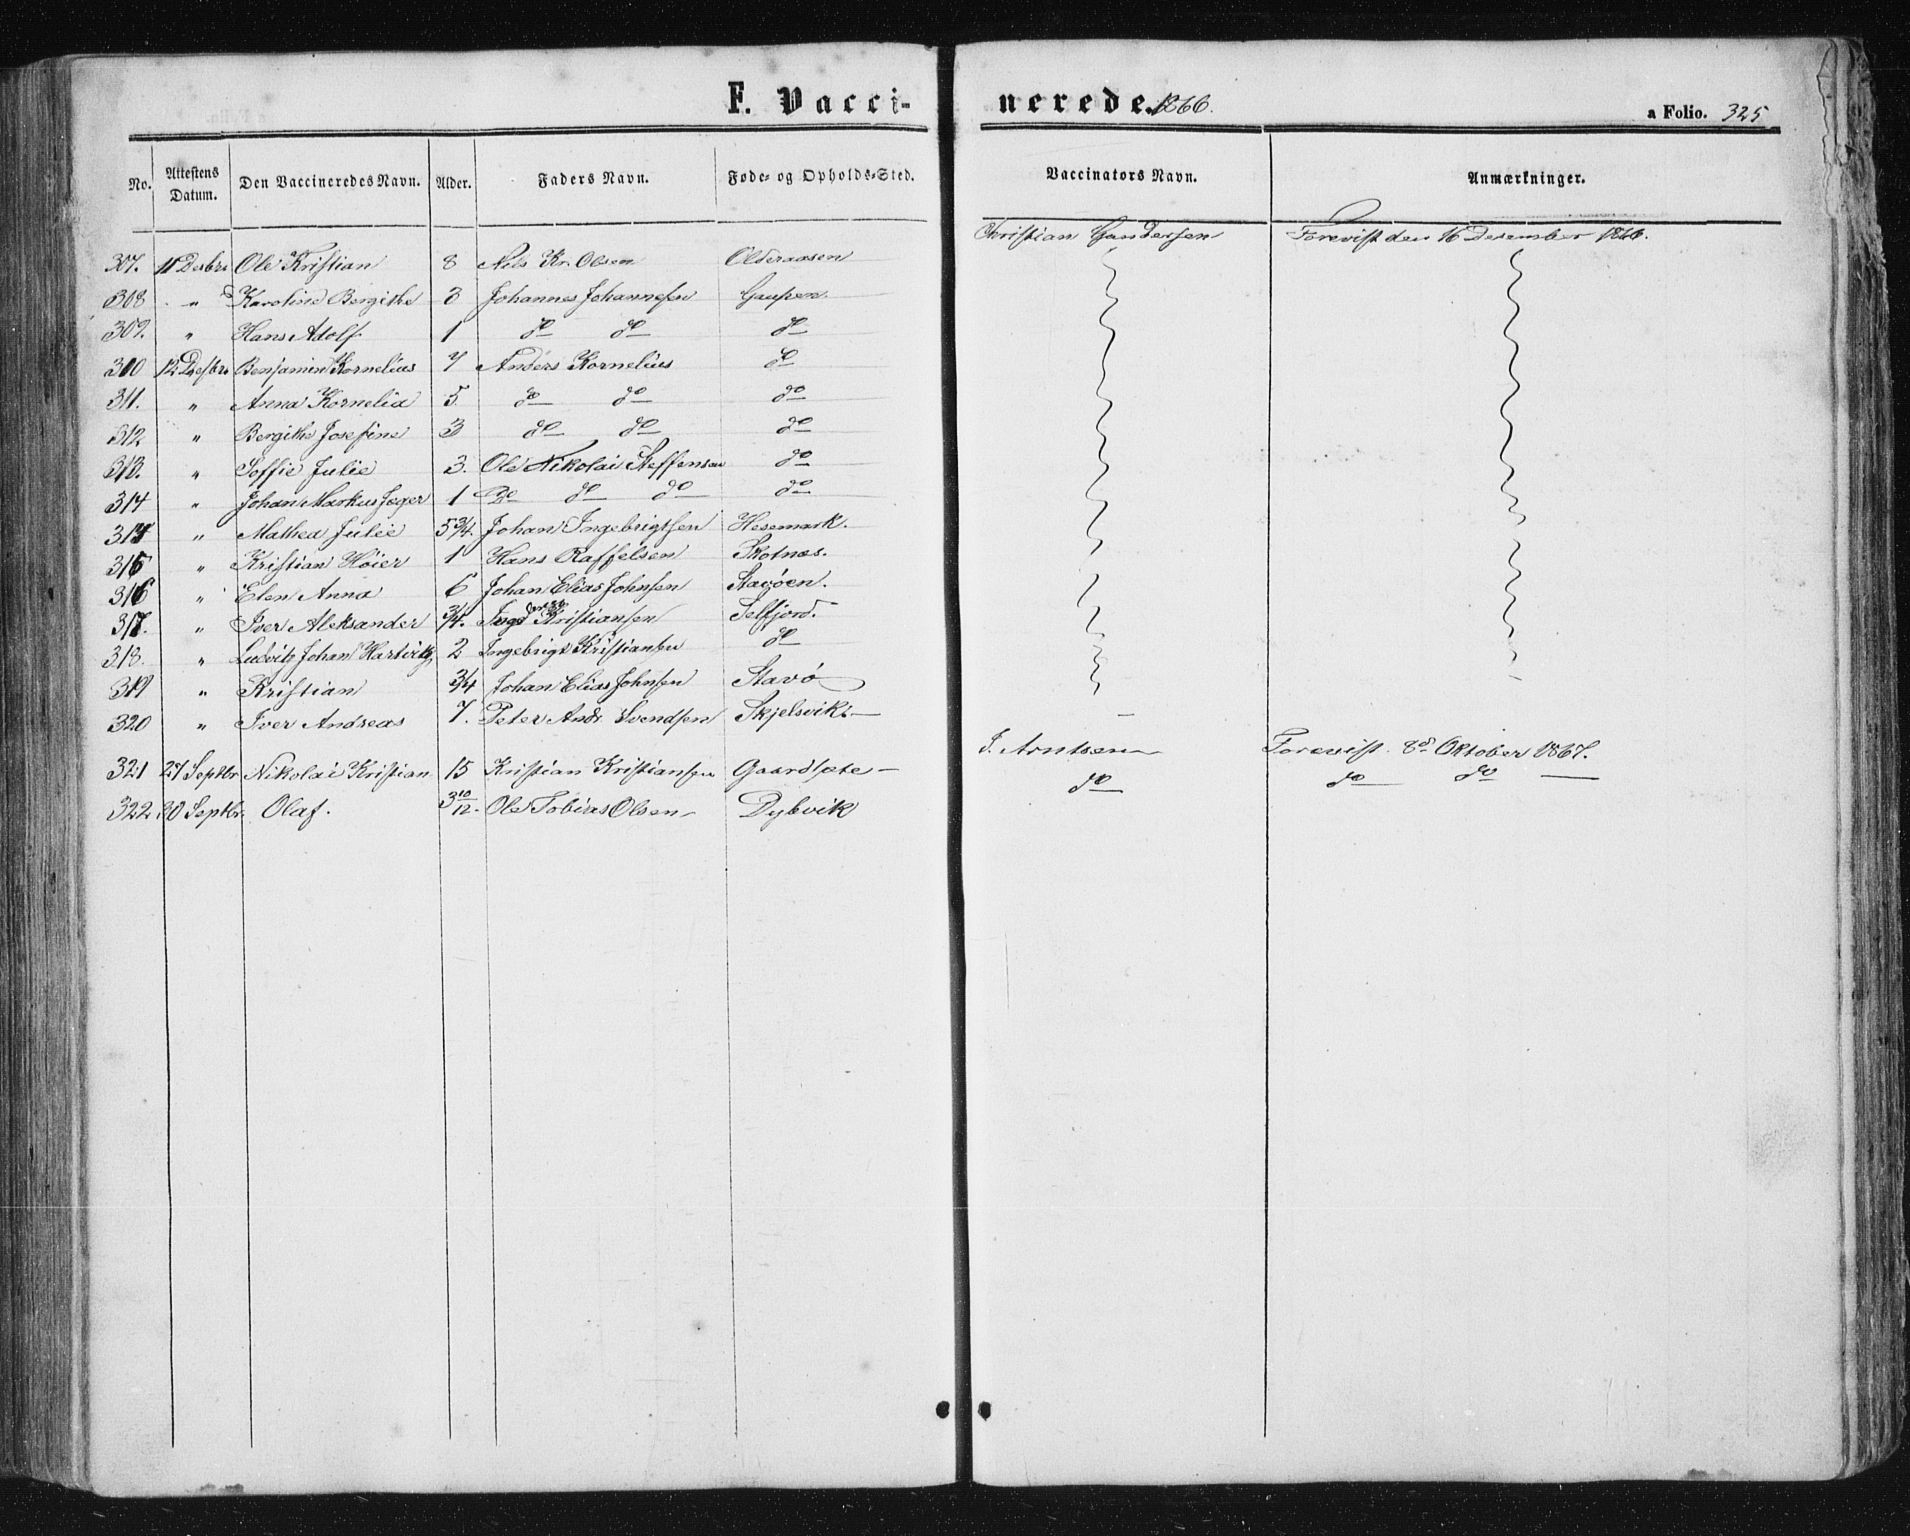 F. Vaccinerede. 1866. a Folio. 325
No. Attestens Datum. Den Vaccineredes Navn. Alder. Faders Navn. Føde- og Opholds-Sted. Vaccinators Navn. Anmærkninger.
307. 11 Desbr Ole Kristian 8 Nils Kr. Olsen Olderaasen Christian Gundersen Forevist den 16 December 1866.
308 " Karoline Bergithe 3 Johannes Johannesen Gaupen.
309. " Hans Adolf 1 do do do
310 12 Desbr Benjamin Kornelius 7 Anders Kornelius do
311. " Anna Kornelia 5. do do do
312 " Bergithe Josefine 3 do do do
313. " Soffie Julie 3. Ole Nikolai Steffensen do
314 " Johan Markus Jæger 1 Do do do do
315 " Mathea Julie 5 3/4. Johan Ingebrigtsen Hesemark.
316 " Kristian Høier 1 Hans Raffelsen Skotnæs.
316 " Elen Anna 6 Johan Elias Johnsen Stavøen.
317. " Iver Aleksander 3/4. Kristiansen Selfjord.
318. " Ludvik Johan Hartvik 2 Ingebrigt Kristiansen do
319 " Kristian 3/4 Johan Elias Johnsen Stavø
320 " Iver Andreas 7. Peter Andr. Svendsen Skjelsvik
321 27 Septbr Nikolai Kristian 15 Kristian Kristiansen Gaardsæte J. Arntsen Forevist 8de Oktober 1867.
322 30 Septbr. Olaf. 3 10/12. Ole Tobias Olsen Dybvik do do do